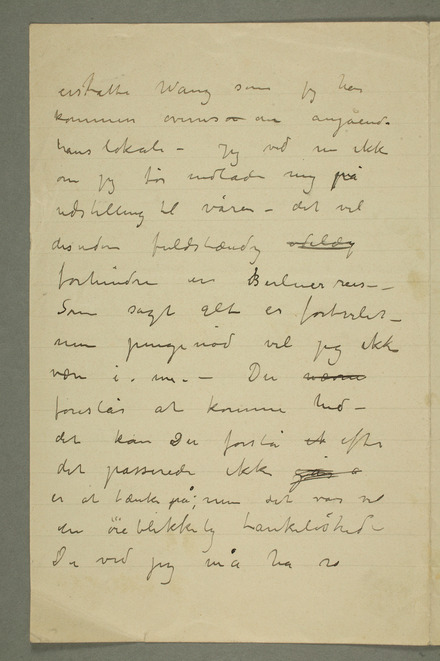 erstatte Wang som jeg har
kommen overens om angående
hans lokale – Jeg ved nu ikke
om jeg tør indlade mig på
udstilling til våren – det vil
desuden fuldstændig ødelæg
forhindre en Berlinerreis –
Som sagt alt er forberedt –
men pengenød vil jeg ikke
være i. nu. – Du næვne
foreslår at komme hid –
det kan Du forstå et efter
det passerede ikke går a
er at tænke på; men det var vel
en øieblikkelig tankeløshed –
Du ved jeg må ha ro